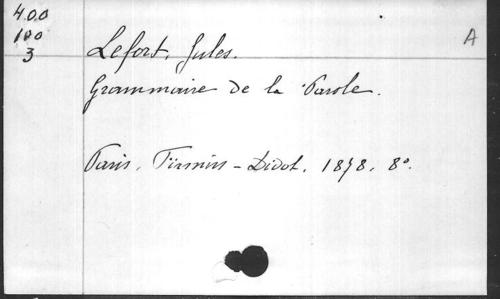 400
100
3
A
Lefort, Jules.
Grammaire de la Parole.
Paris, Firmin-Didot. 1878. 8°.